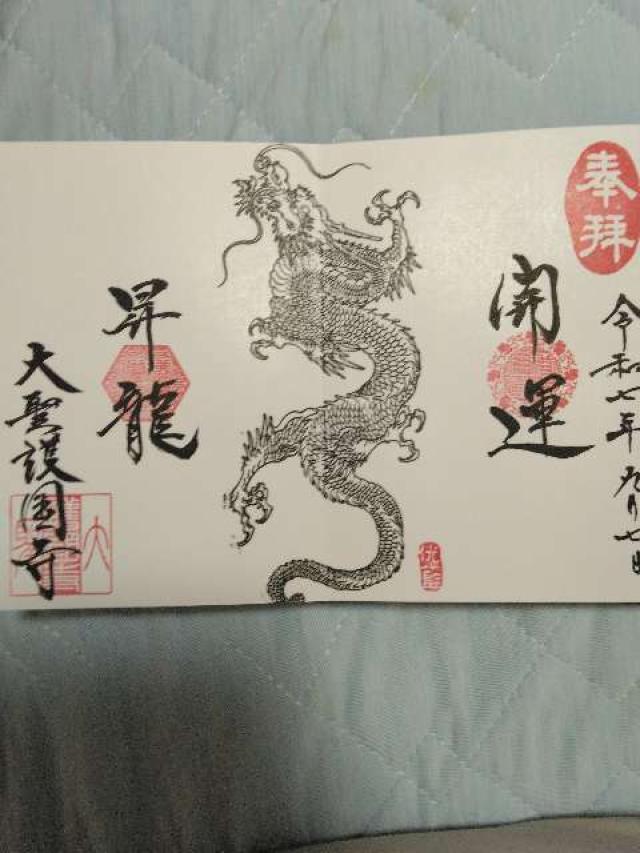 奉拝
令和七年九月七日
開運
昇龍
大聖護国寺